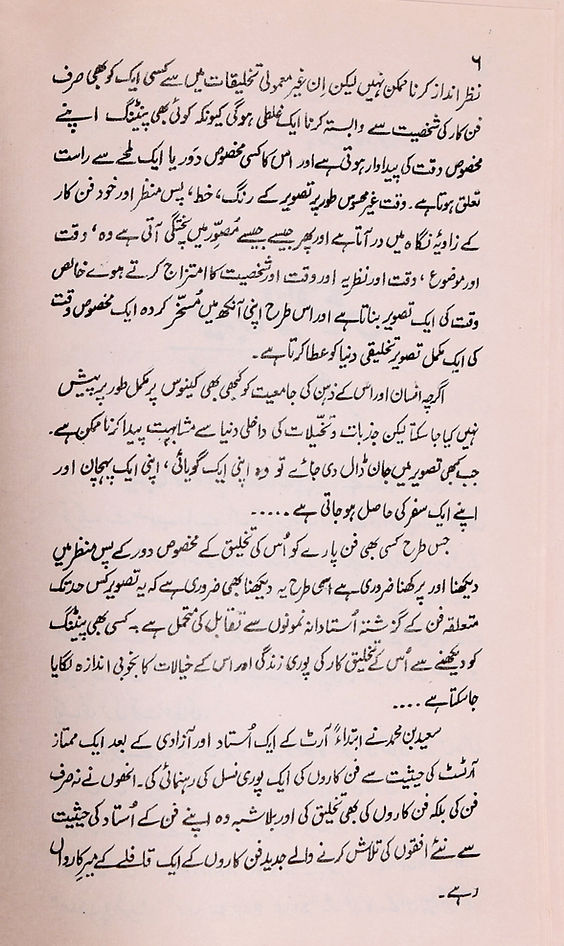 ۶
نظر انداز کرنا ممکن نہیں لیکن اِن غیر معمولی تخلیقات میں سے کسی ایک کو بھی صرف
فن کار کی شخصیت سے وابستہ کرنا ایک غلطی ہوگی کیونکہ کوئی بھی پینٹنگ اپنے
مخصوص وقت کی پیداوار ہوتی ہے اور اس کا کسی مخصوص دَور یا ایک لمحے سے راست
تعلق ہوتا ہے۔ وقت غیر محسوس طور پر تصویر کے رنگ، خط، پس منظر اور خود فن کار
کے زاویۂ نگاہ میں در آتا ہے اور پھر جیسے جیسے مُصوّر میں پختگی آتی ہے وہ، وقت
اور موضوع، وقت اور نظریہ اور وقت اور شخصیت کا امتزاج کرتے ہوے خالص
وقت کی ایک تصویر بناتا ہے اور اس طرح اپنی آنکھ میں مُسخّر کردہ ایک مخصوص وقت
کی ایک مکمل تصویر تخلیقی دنیا کو عطا کرتا ہے۔
اگرچہ انسان اور اس کے ذہن کی جامعیت کو کبھی بھی کینوس پر مکمل طور پر پیش
نہیں کیا جا سکتا لیکن جذبات و تخیّلات کی داخلی دنیا سے مشابہت پیدا کرنا ممکن ہے۔
جب کبھی تصویر میں جان ڈال دی جائے تو وہ اپنی ایک گویائی، اپنی ایک پہچان اور
اپنے ایک سفر کی حاصل ہو جاتی ہے .....
جس طرح کسی بھی فن پارے کو اُس کی تخلیق کے مخصوص دور کے پس منظر میں
دیکھنا اور پرکھنا ضروری ہے اسی طرح یہ دیکھنا بھی ضروری ہے کہ یہ تصویر کس حد تک
متعلقہ فن کے گزشتہ اُستادانہ نمونوں سے تقابل کی متحمل ہے۔ کسی بھی پینٹنگ
کو دیکھنے سے اُس کے تخلیق کار کی پوری زندگی اور اس کے خیالات کا بخوبی اندازہ لگایا
جا سکتا ہے ....
سعید بن محمد نے ابتداءً آرٹ کے ایک اُستاد اور آزادی کے بعد ایک ممتاز
آرٹسٹ کی حیثیت سے فن کاروں کی ایک پوری نسل کی رہنمائی کی۔ انھوں نے نہ صرف
فن کی بلکہ فن کاروں کی بھی تخلیق کی اور بلاشبہ وہ اپنے فن کے اُستاد کی حیثیت
سے نئے افقوں کی تلاش کرنے والے جدید فن کاروں کے ایک قافلے کے میرِ کارواں
رہے۔